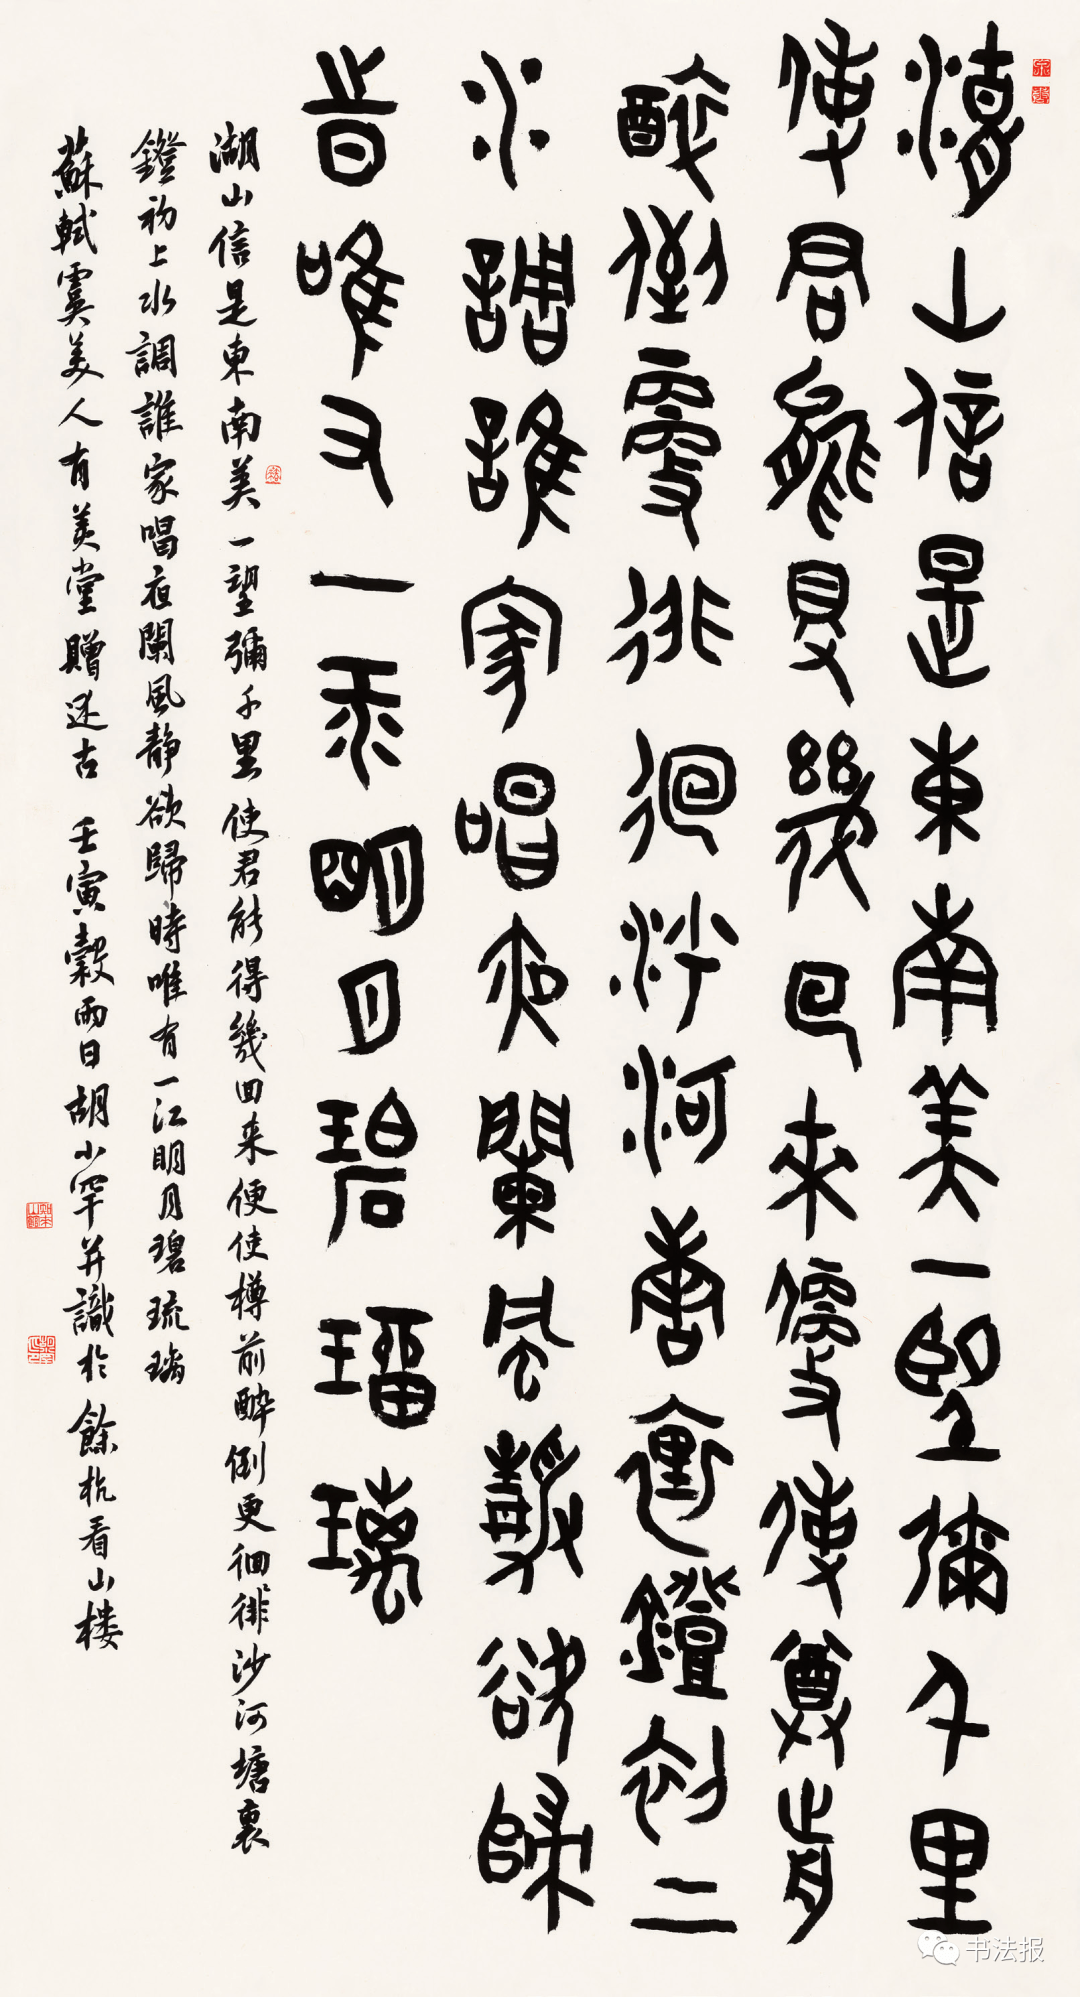 湖山信是東南美一望彌千里
使君能得幾回來便使尊前
醉倒更徘徊沙河塘裏鐙初上
水調誰家唱夜闌風静欲歸
時唯有一江明月碧瑠璃
湖山信是東南美一望彌千里使君能得幾回来便使樽前醉倒更徊徘沙河塘裏
鐙初上水調誰家唱夜闌風静欲歸時唯有一江明月碧琉璃
蘇軾虞美人有美堂贈述古 壬寅穀雨日胡小罕并識於餘杭看山楼
书法报